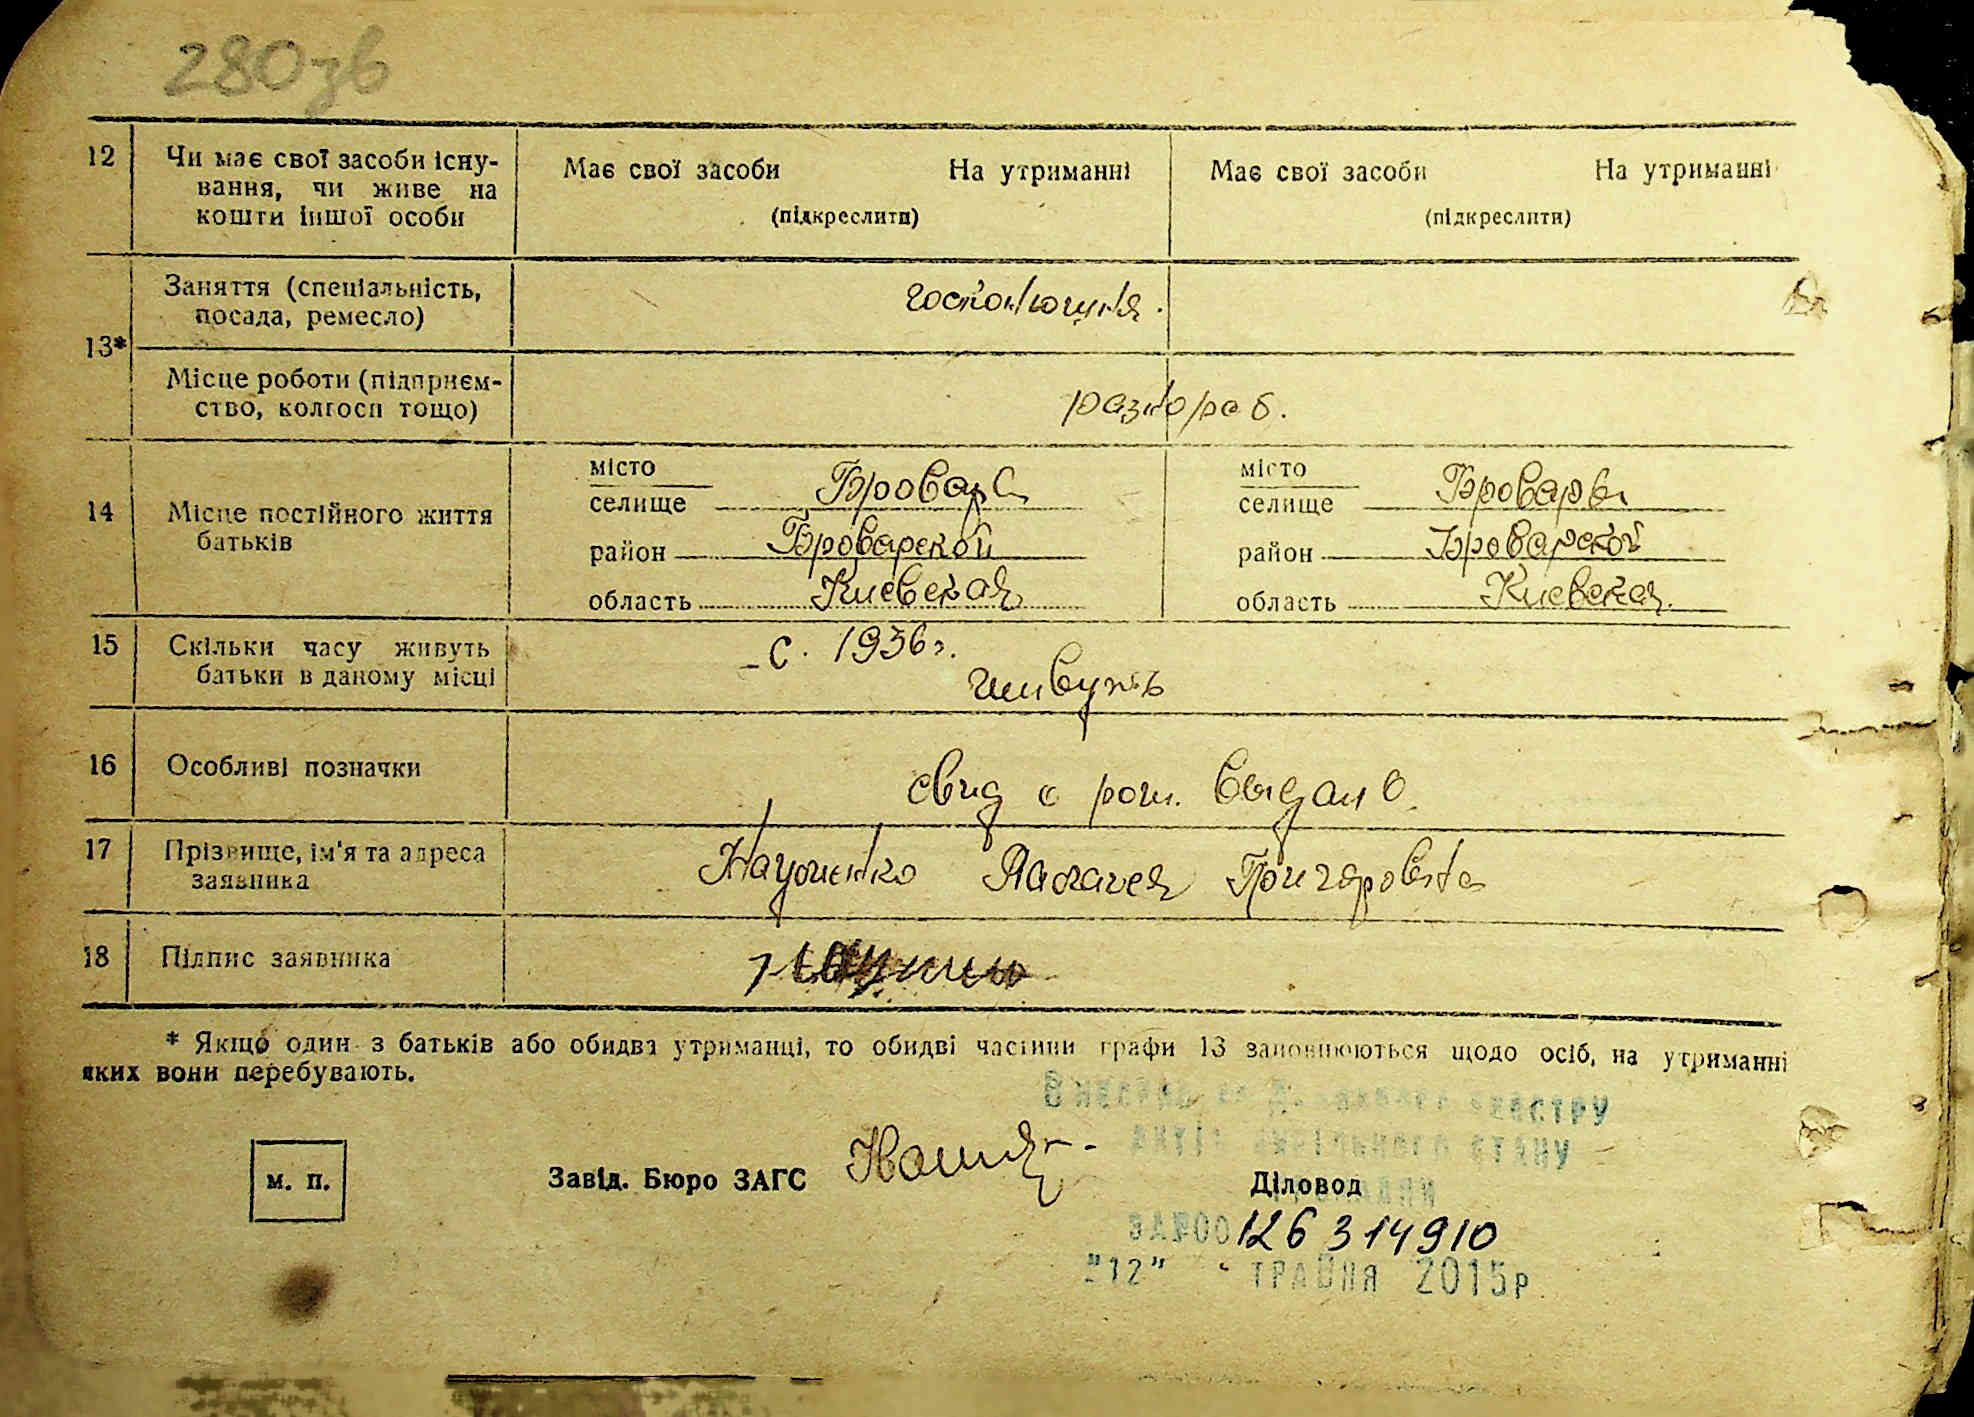 280зв
12 Чи має свої засоби існу-
вання, чи живе на
кошти іншої особи
Має свої засоби На утриманні
(підкреслити)
Має свої засоби На утриманні
(підкреслити)
13*
Заняття (спеціальність,
посада, ремесло)
Місце роботи (підприєм-
ство, колгосп тощо)
разнораб.
14 Місце постійного життя
батьків
місто
селище Бровары
район Броварской
область Киевская
місто
селище Бровары
район Броварской
область Киевская
15 Скільки часу живуть
батьки в даному місці
с. 1936 г.
живуть
16 Особливі позначки
свид о рож. выдано
17 Прізвище, ім'я та адреса
заявника
Науменко Григоровна
18 Підпис заявника
* Якщо один з батьків або обидва утриманці, то обидві частини графи 13 заповнюються щодо осіб, на утриманні
яких вони перебувають.
Внесено до Державного реєстру
актів цивільного стану
громадян
м. п.
Завід. Бюро ЗАГС
Діловод
ЗА №00126314910
"12" ТРАВНЯ 2015р